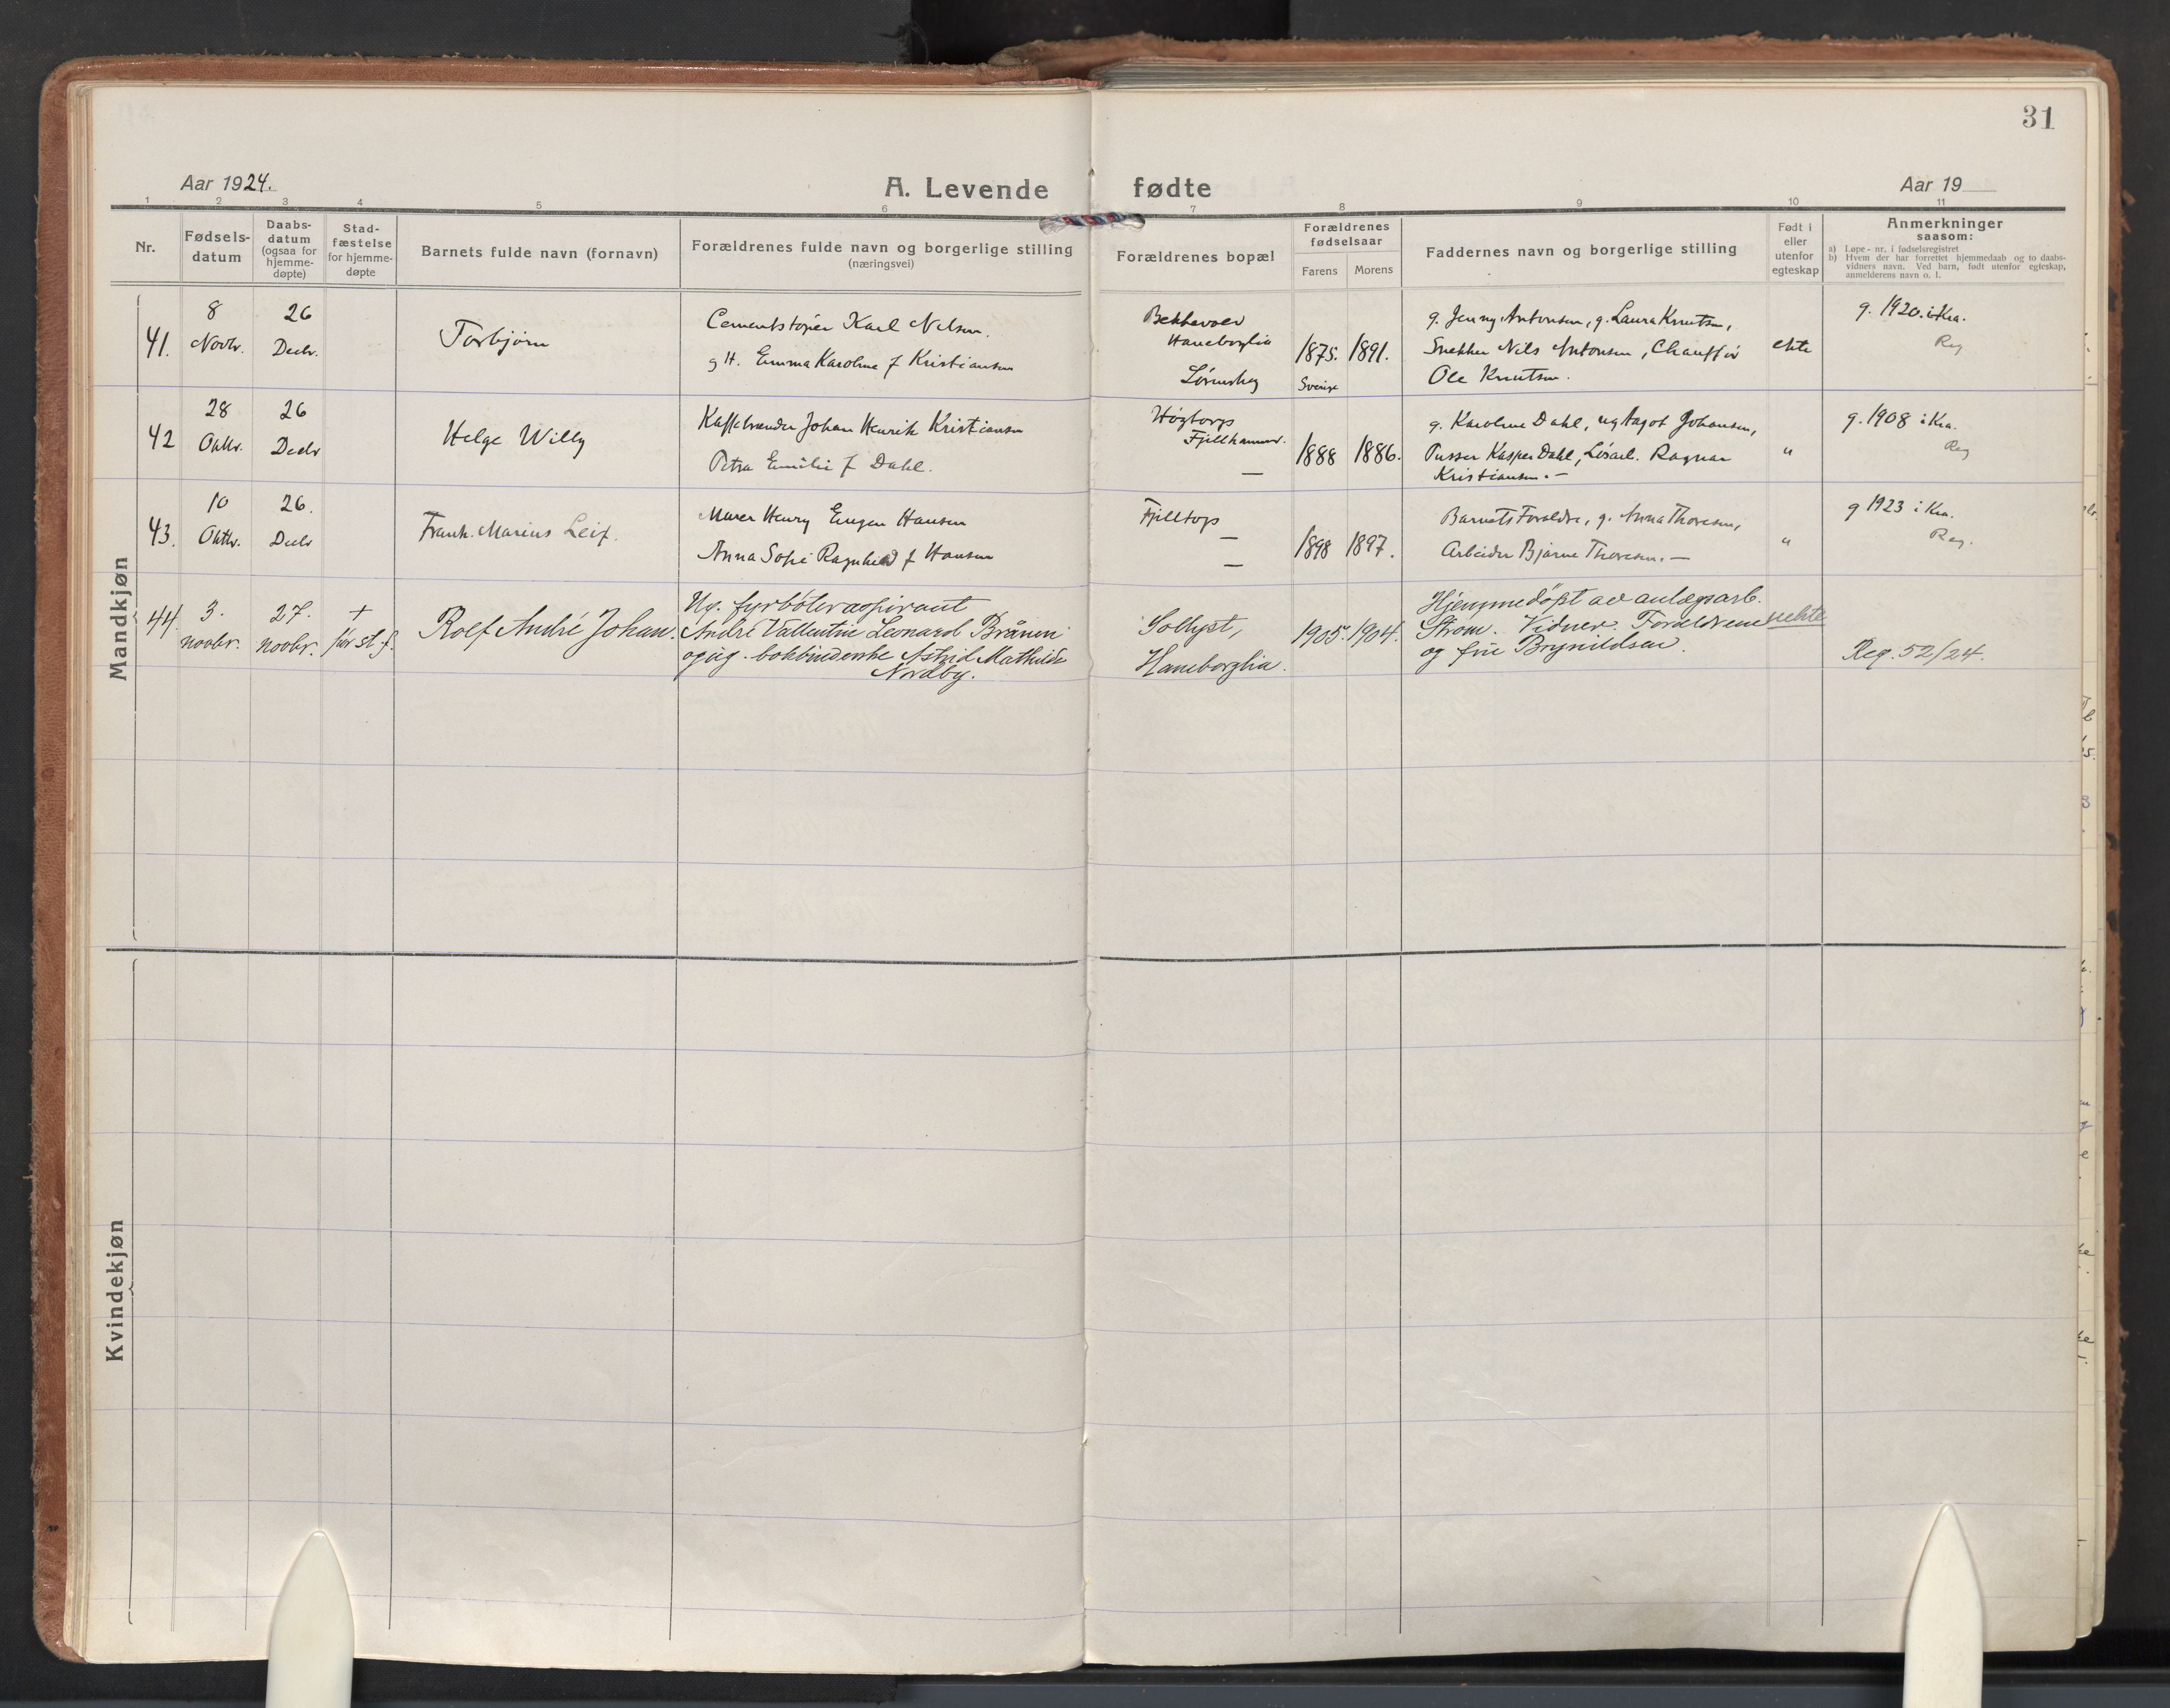 31
Aar 1924.
A. Levende fødte
Aar 19
1 2 3 4 5 6 7 8 9 10 11
Nr.
Fødsels-
datum
Daabs-
datum
(ogsaa for
hjemme-
døpte)
Stad-
fæstelse
for hjemme-
døpte
Barnets fulde navn (fornavn)
Forældrenes fulde navn og borgerlige stilling
(næringsvei)
Forældrenes bopæl
Forældrenes
fødselsaar
Farens Morens
Faddernes navn og borgerlige stilling
Født i
eller
utenfor
egteskap
Anmerkninger
saasom:
a) Løpe-nr. i fødselsregistret
b) Hvem der har forrettet hjemmedaab og to daabs-
vidners navn. Ved barn, født utenfor egteskap,
anmelderens navn o. l.
Mandkjøn
41.
8
Novbr.
26
Decbr.
Torbjørn
Cementstøper Karl Nilsen.
g H. Emma Karoline f Kristiansen
Haneborglia
1875. 1891.
Sverige
g. Jenny Antonsen, g. Laura Knutsen,
Snekker Nils Antonsen, Chauffør
Ole Knutsen.
ekte
g. 1920. i Kra.
Reg
42
28
Oktbr.
26
Decbr
Helge Willy
Kaffebrender Johan Henrik Kristiansen
Petra Emilie f Dahl.
Høgtorp
Fjellhammer.
—
1888 1886.
g. Karoline Dahl, ug Aagot Johansen,
Pusser Kasper Dahl, Ragnar
Kristiansen. —
"
g. 1908 i Kra.
Reg
43.
10
Oktbr.
26.
Decbr
Frank. Marius Leif.
Murer Henry Eugen Hansen
Anna Sofie Ragnhild f Hansen
Fjelltop
—
—
1898 1897.
Barnets Foreldre, g. Anna Thoresen,
Arbeider Bjarne Thoresen. —
"
g 1923 i Kra.
Reg.
44
3.
novbr.
27.
novbr.
+
før st. f.
Rolf André Johan.
Ug. fyrbøteraspirant
André Vallentin Leonard
og ug. bokbinderske Astrid Mathilde
Nordby.
Haneborglia.
1905. 1904.
Hjemmedøpt av anlegsarb.
Strøm. Vidner. Foreldrene
og frie Brynildsen.
uekte
Reg. 52/24.
Kvindekjøn